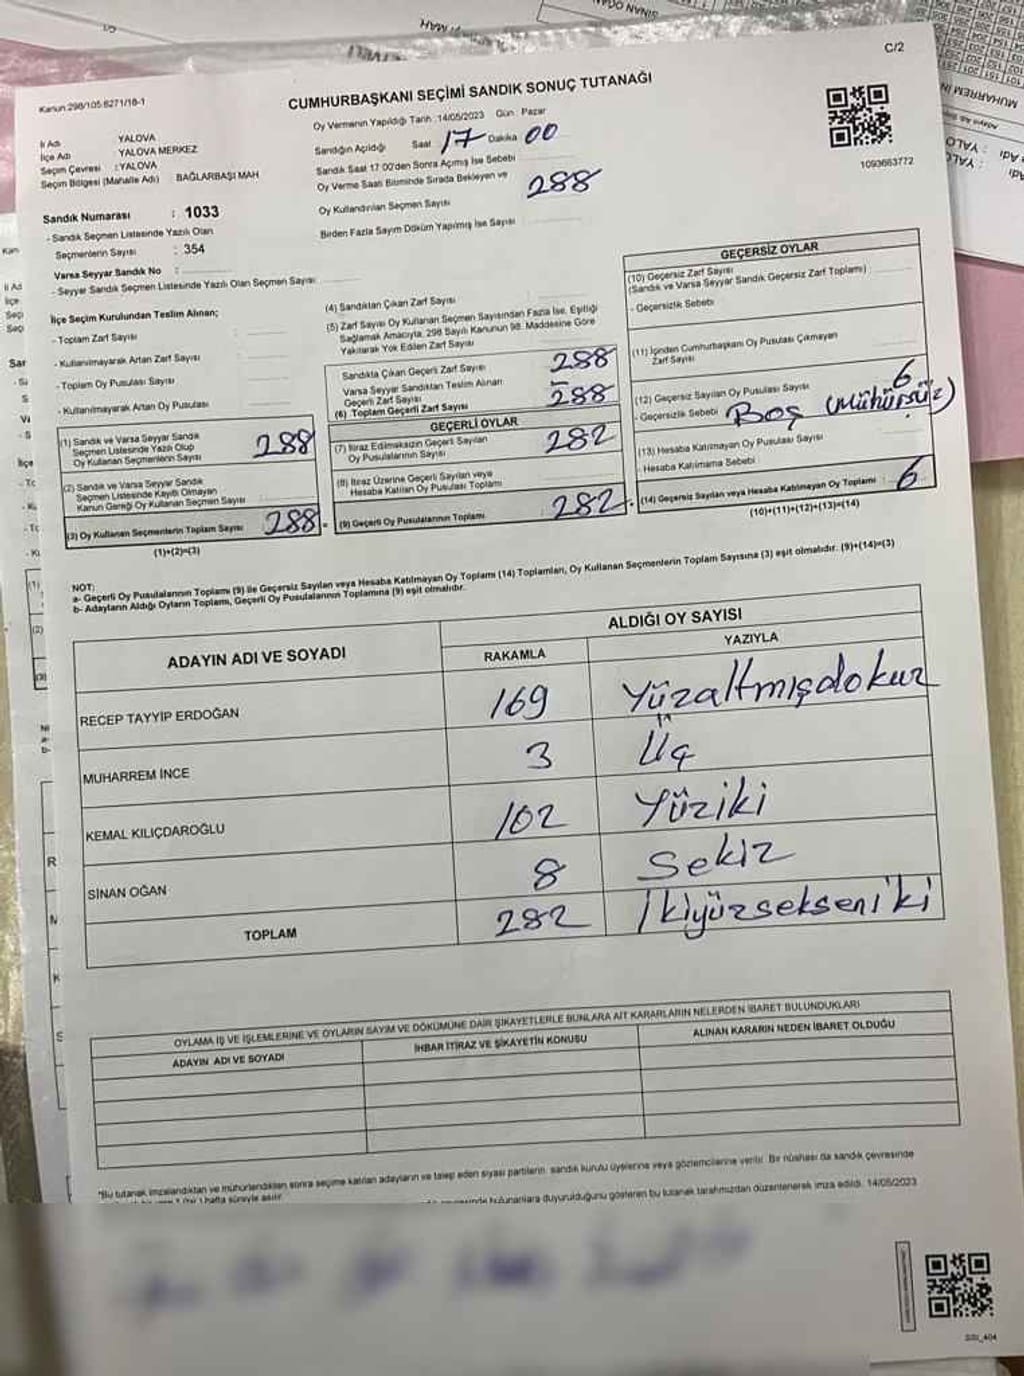 C/2
Kanun:298/105.6271/18-1
CUMHURBAŞKANI SEÇİMİ SANDIK SONUÇ TUTANAĞI
Oy Vermenin Yapıldığı Tarih :14/05/2023 Gün : Pazar
İl Adı YALOVA
İlçe Adı YALOVA MERKEZ
Seçim Çevresi : YALOVA
Seçim Bölgesi (Mahalle Adı) : BAĞLARBAŞI MAH
Sandığın Açıldığı Saat 17 Dakika 00
Sandık Saat 17:00'den Sonra Açmış İse Sebebi
Oy Verme Saati Bitiminde Sırada Bekleyen ve
Oy Kullandırılan Seçmen Sayısı 288
Birden Fazla Sayım Döküm Yapılmış İse Sayısı
1093663772
Sandık Numarası : 1033
- Sandık Seçmen Listesinde Yazılı Olan
Seçmenlerin Sayısı : 354
Varsa Seyyar Sandık No :
- Seyyar Sandık Seçmen Listesinde Yazılı Olan Seçmen Sayısı:
İlçe Seçim Kurulundan Teslim Alınan;
- Toplam Zarf Sayısı :
- Kullanılmayarak Artan Zarf Sayısı
- Toplam Oy Pusulası Sayısı
- Kullanılmayarak Artan Oy Pusulası
(1) Sandık ve Varsa Seyyar Sandık
Seçmen Listesinde Yazılı Olup
Oy Kullanan Seçmenlerin Sayısı 288
(2) Sandık ve Varsa Seyyar Sandık
Seçmen Listesinde Kayıtlı Olmayan
Kanun Gereği Oy Kullanan Seçmen Sayısı
(3) Oy Kullanan Seçmenlerin Toplam Sayısı 288=
(1)+(2)=(3)
(4) Sandıktan Çıkan Zarf Sayısı
(5) Zarf Sayısı Oy Kullanan Seçmen Sayısından Fazla İse, Eşitliği
Sağlamak Amacıyla, 298 Sayılı Kanunun 98. Maddesine Göre
Yakılarak Yok Edilen Zarf Sayısı
Sandıkta Çıkan Geçerli Zarf Sayısı 288
Varsa Seyyar Sandıktan Teslim Alınan
Geçerli Zarf Sayısı –
(6) Toplam Geçerli Zarf Sayısı 288
GEÇERLİ OYLAR
(7) İtiraz Edilmeksizin Geçerli Sayılan
Oy Pusulalarının Sayısı 282
(8) İtiraz Üzerine Geçerli Sayılan veya
Hesaba Katılan Oy Pusulası Toplamı
(9) Geçerli Oy Pusulalarının Toplamı 282+
GEÇERSİZ OYLAR
(10) Geçersiz Zarf Sayısı
(Sandık ve Varsa Seyyar Sandık Geçersiz Zarf Toplamı)
- Geçersizlik Sebebi
(11) İçinden Cumhurbaşkanı Oy Pusulası Çıkmayan
Zarf Sayısı
(12) Geçersiz Sayılan Oy Pusulası Sayısı 6
- Geçersizlik Sebebi Boş (Mühürsüz)
(13) Hesaba Katılmayan Oy Pusulası Sayısı
- Hesaba Katılmama Sebebi
(14) Geçersiz Sayılan veya Hesaba Katılmayan Oy Toplamı : 6
(10)+(11)+(12)+(13)=(14)
NOT:
a- Geçerli Oy Pusulalarının Toplamı (9) ile Geçersiz Sayılan veya Hesaba Katılmayan Oy Toplamı (14) Toplamları, Oy Kullanan Seçmenlerin Toplam Sayısına (3) eşit olmalıdır. (9)+(14)=(3)
b- Adayların Aldığı Oyların Toplamı, Geçerli Oy Pusulalarının Toplamına (9) eşit olmalıdır.
ADAYIN ADI VE SOYADI
ALDIĞI OY SAYISI
RAKAMLA YAZIYLA
RECEP TAYYİP ERDOĞAN 169 Yüzaltmışdokuz
MUHARREM İNCE 3 Üç
KEMAL KILIÇDAROĞLU 102 Yüziki
SİNAN OĞAN 8 Sekiz
TOPLAM 282 İkiyüzsekseniki
OYLAMA İŞ VE İŞLEMLERİNE VE OYLARIN SAYIM VE DÖKÜMÜNE DAİR ŞİKAYETLERLE BUNLARA AİT KARARLARIN NELERDEN İBARET BULUNDUKLARI
ADAYIN ADI VE SOYADI İHBAR İTİRAZ VE ŞİKAYETİN KONUSU ALINAN KARARIN NEDEN İBARET OLDUĞU
"Bu tutanak imzalandıktan ve mühürlendikten sonra seçime katılan adayların ve talep eden siyasi partilerin, sandık kurulu üyelerine veya gözlemcilerine verilir. Bir nüshası da sandık çevresinde
hafta süreyle asılır. bulunanlara duyurulduğunu gösteren bu tutanak tarafımızdan düzenlenerek imza edildi. 14/05/2023
SSI_404